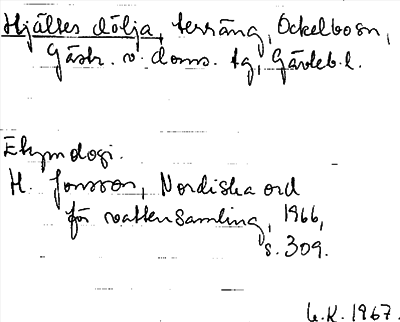 Hjältes dölja, terräng, Ockelbo sn,
Gästr. v. doms. tg, Gävleb. l.
Etymologi.
H. Jonsson, Nordiska ord
för vattensamling, 1966,
s. 309.
G.K. 1967.